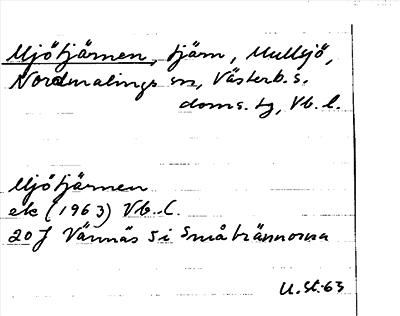 Mjötjärnen, tjärn, Mullsjö,
Nordmalings sn, Västerb. s.
doms. tg, Vb. l.
Mjötjärnen
ek (1963) Vb. l.
20 J Vännäs Si Småtrännorna
U. St. 63